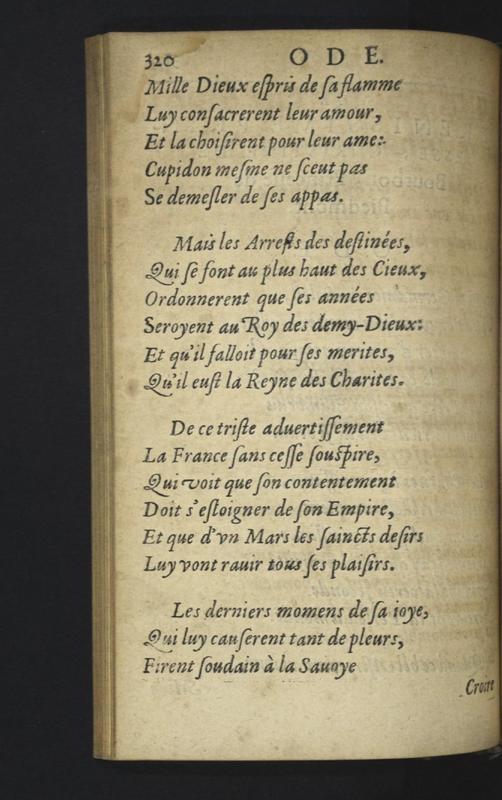 320 ODE.
Mille Dieux eſpris de ſa flamme
Luy conſacrerent leur amour,
Et la choiſirent pour leur ame:
Cupidon meſme ne ſceut pas
Se demeſler de ſes appas.
Mais les Arreſts des deſtinées,
Qui ſe font au plus haut des Cieux,
Ordonnerent que ſes années
Seroyent au Roy des demy-Dieux:
Et qu'il falloit pour ſes merites,
Qu'il euſt la Reyne des Charites.
De ce triſte advertiſſement
La France ſans ceſſe ſouſpire,
Qui voit que ſon contentement
Doit s'eſloigner de ſon Empire,
Et que d'vn Mars les ſaincts deſirs
Luy vont rauir tous ſes plaiſirs.
Les derniers momens de ſa ioye,
Qui luy cauſerent tant de pleurs,
Firent ſoudain à la Sauoye
Croire